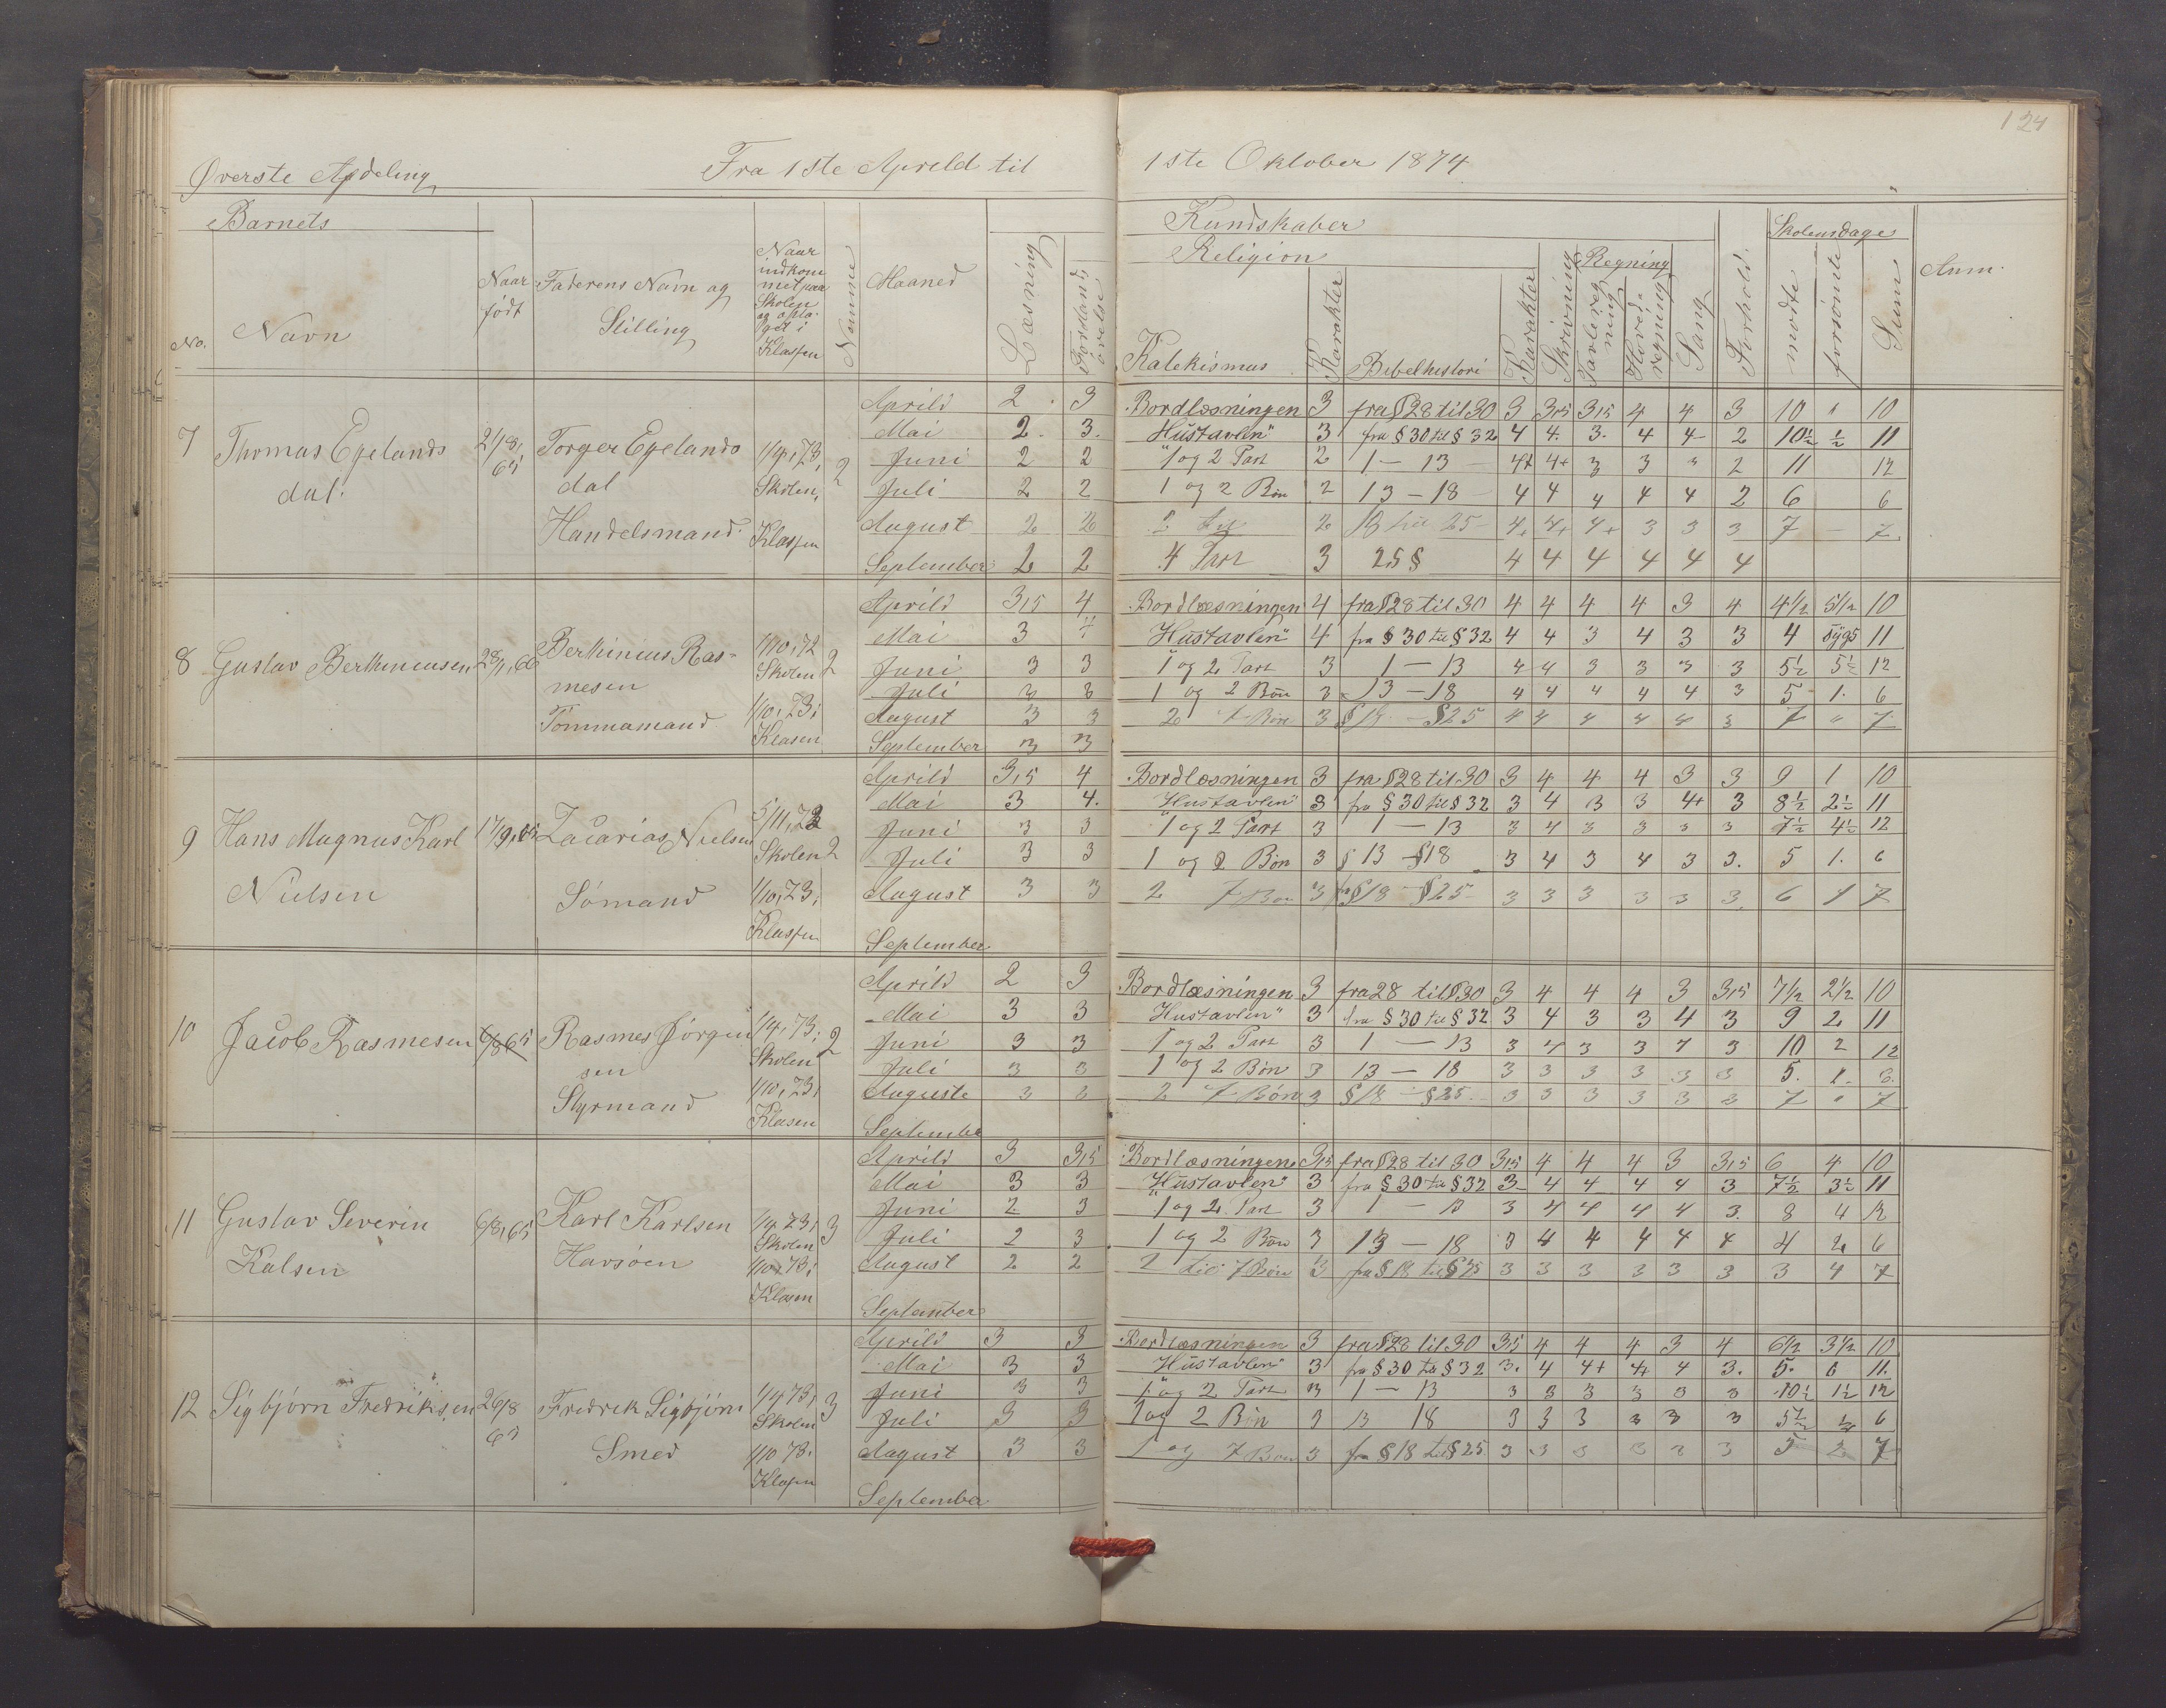 124
Øverste Afdeling Fra 1ste Apreld til 1ste Oktober 1874
Barnets Kundskaber Skolensdage
Religion Regning
No. Navn Naar født Faderens Navn og Stilling Naar indkommet paa Skolen og optaget i Klassen Nummer Maaned Læsning Forstandsøvelse Katekismus Karakter Bibelhistori Karakter Skrivning Tavleregning Hovedregning Sang Forhold mødte forsømte Sum Anm.
7 Thomas Egelandsdal. 21/8, 65 Torger Egelandsdal Handelsmand. 1/4, 73, Skolen, Klassen 2
Aprild 2 3 Bordlæsningen 3 fra § 28 til 30 3 3,5 3,5 4 4 3 10 " 10
Mai 2. 3. "Hustavlen" 3 fra § 30 til § 32 4 4. 3. 4 4 2 10½ ½ 11
Juni 2 2 1 og 2 Part 2 1 — 13 4+ 4+ 3 3 3 2 11 12
Juli 2 2 1 og 2 Bøn 2 13 – 18 4 4 4 4 4 2 6 6
August 2 2 2 2 18 til 25 4+ 4+ 4+ 3 3 3 7 — 7
September 2 2 4 Part 3 25 § 4 4 4 4 4 4
8 Gustav Berthiniusen 28/1, 66 Berthinius Rasmesen Tømmamand 1/10, 72 Skolen 1/10, 73, Klasen 2
Aprild 3,5 4 Bordlæsningen 4 fra § 28 til 30 4 4 4 4 3 4 4½ 5½ 10
Mai 3 4 Hustavlen" 4 fra § 30 til § 32 4 4 3 4 3 3 4 syg5 11
Juni 3 3 1 og 2 Part 3 1 — 13 4 4 3 3 3 3 5½ 5½ 12
Juli 3 3 1 og 2 Bøn 3 13 – 18 4 4 4 4 4 3 5 1. 6
August 3 3 2 7 Bøn 3 § 18 – § 25 4 4 4 4 4 3 7 " 7
September 3 3
9 Hans Magnus Karl Nielsen 17/9, 65 Zacarias Nielsen Sømand 5/11, 72 Skolen 1/10, 73, Klassen 2
Aprild 3,5 4 Bordlæsningen 3 fra § 28 til 30 3 4 4 4 3 3 9 1 10
Mai 3 4. "Hustavlen" 3 fra § 30 til § 32 3 4 3 3 4+ 3 8½ 2½ 11
Juni 3 3 1 og 2 Part 3 1 — 13 3 4 3 3 3 3 7½ 4½ 12
Juli 3 3 1 og 2 Bøn 3 § 13 – § 18 3 4 3 4 3 3. 5 1. 6
August 3 3 2 7 Bøn 3 fr § 18 – § 25 3 3 3 3 3 3. 6 1 7
September
10 Jacob Rasmesen 6/8 65 Rasmes Jørgensen Styrmand 1/4, 73, Skolen 1/10, 73, Klasen 2
Aprild 2 3 Bordlæsningen 3 fra 28 til § 30 3 4 4 4 3 3,5 7½ 2½ 10
Mai 3 3 Hustavlen" 3 fra § 30 til § 32 3 4 3 3 4 3 9 2 11
Juni 3 3 1 og 2 Part 3 1 — 13 3 4 3 3 4 3 10 2 12
Juli 3 3 1 og 2 Bøn 3 13 — 18 3 3 3 3 3 3 5. 1.
Auguste 3 3 2 7 Bøn 3 § 18 – § 25. 3 3 3 3 3 3 7 " 7
Septembe
11 Gustav Severin Kalsen 6/8, 65 Karl Karlsen Havsøen 1/4 73, Skolen 1/10 73, Klasen 3
Aprild 3 3,5 Bordlæsningen 3,5 fra § 28 til 30 3,5 4 4 4 3 3,5 6 4 10
Mai 3 3 "Hustavlen" 3 fra § 30 til § 32 3 4 4 4 4 3 7½ 3½ 11
Juni 2 3 1 og 2 Part 3 1 — 13 3 4 4 4 4 3. 8 4 12
Juli 2 3 1 og 2 Bøn 3 13 — 18 3 4 4 4 4 4 4 2 6
August 2 2 2 til 7 Bøn 3 fra § 18 til § 25 3 3 3 3 3 3 3 4 7
September
12 Sigbjørn Fredriksen 26/8 65 Fredrek Sigbjørn Smed 1/4 73, Skolen 1/10 73. Klasen 3
Aprild 3 3 Bordlæsningen 3 fra § 28 til 30 3,5 4 4 4 3 4 6½ 3½ 10
Mai 3 3 Hustavlen" 3 fra § 30 til § 32 3. 4 4+ 4+ 4 3. 5. 6 11.
Juni 3 3 1 og 2 Part 3 1 — 13 3 3 3 3 3 3 10½ 1½ 12
Juli 3 3 1 og 2 Bøn 3 13 18 3 3 3 3 3 3 5½ ½ 6
August 3 3 1 og 7 Bøn 3 fra § 18 til § 25 3 3 3 3 3 3 5 2 7
September